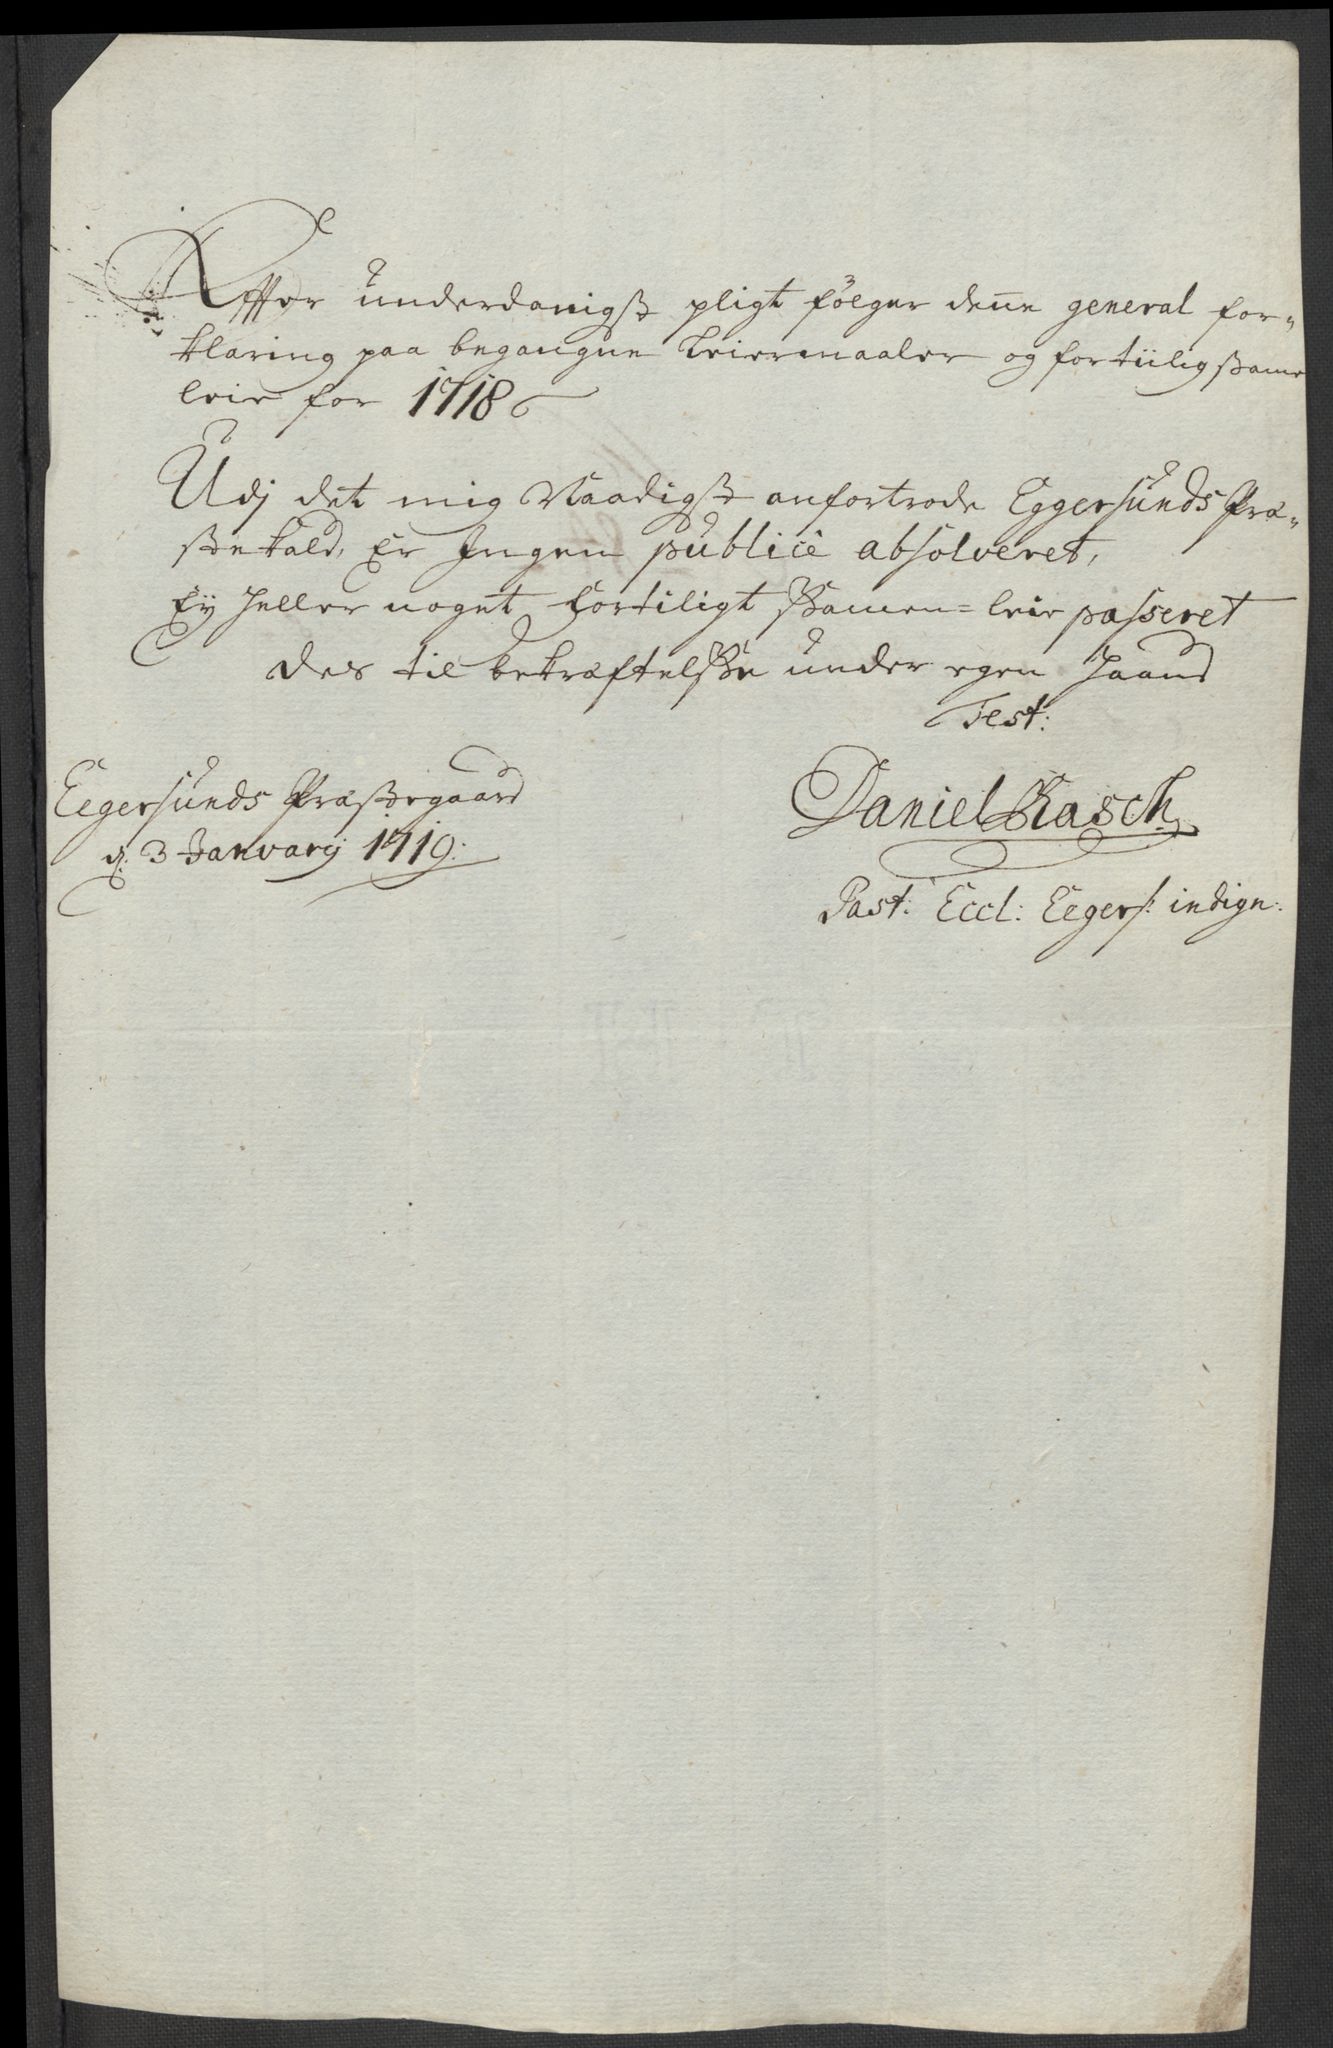 Effter underdanigst pligt følger deñe general for-
klaring paa begangne Leiermaaler og fortiilig Sam-
leie for 1718
Udj det mig Naadigst anfortrode Eggersunds Præ-
stekald, Er Ingen publicè absolveret,
Ey heller noget fortiligt Sammen=leie passeret
des til bekræftelsse under egen Haand
Test:
Eegersunds Præstegaard
d: 3 Januarij 1719:
Daniel Rasch
Past: Eccl: Eegers: indign: